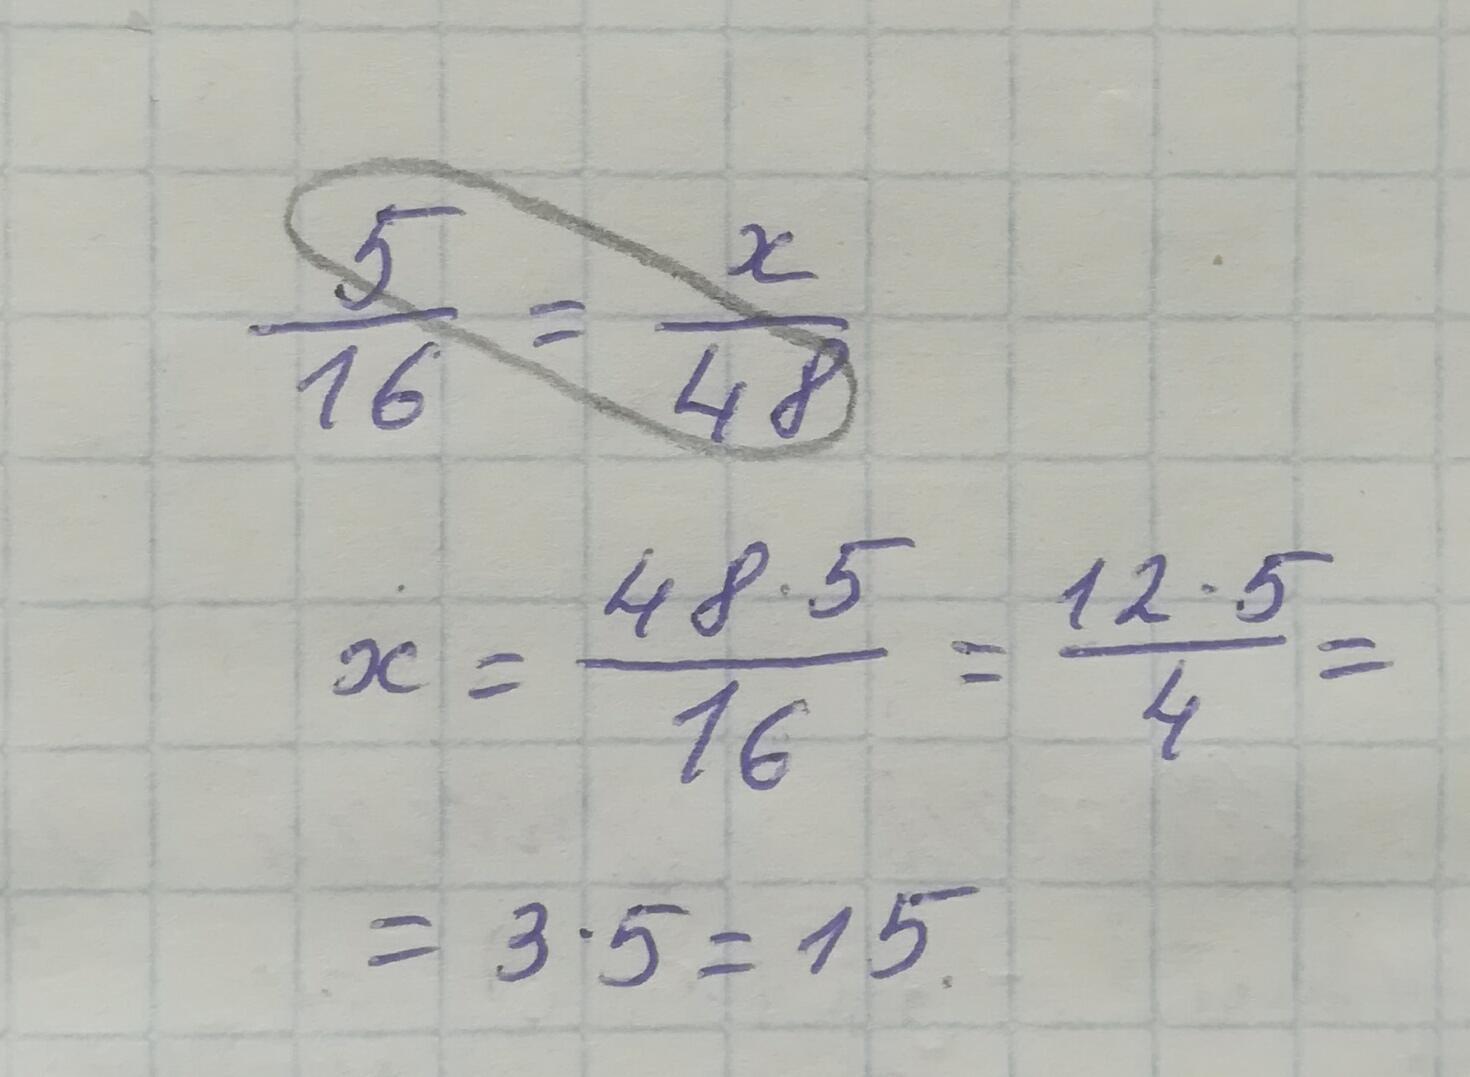 5/16 = x/48
x = 48·5/16 = 12·5/4 =
= 3·5 = 15.